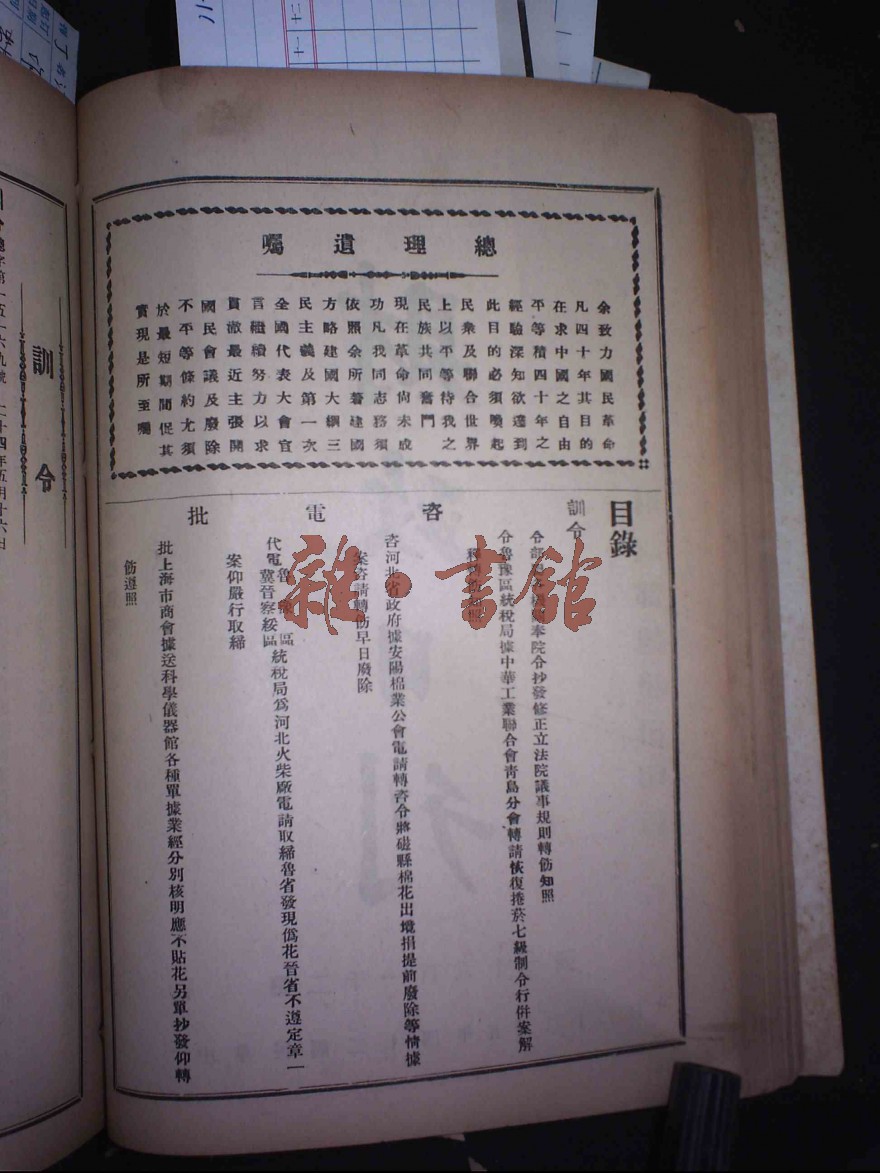 總理遺囑
余致力國民革命
凡四十年其目的
在求中國之自由
平等積四十年之
經驗深知欲達到
此目的必須喚起
民衆及聯合世界
上以平等待我之
民族共同奮鬥
現在革命尙未成
功凡我同志務須
依照余所著建國
方略建國大綱三
民主義及第一次
全國代表大會宣
言繼續努力以求
貫澈最近主張開
國民會議及廢除
不平等條約尤須
於最短期間促其
實現是所至囑
目錄
訓令
奉院令抄發修正立法院議事規則轉飭知照
令魯豫區統稅局據中華工業聯合會靑島分會轉請恢復捲菸七級制令行併案解
咨
咨河北省政府據安陽棉業公會電請轉咨令將磁縣棉花出境捐提前廢除等情據
案咨請轉飭早日廢除
電
代電魯豫區冀晉察綏區統稅局爲河北火柴廠電請取締魯省發現僞花晉省不遵定章一
案仰嚴行取締
批
批上海市商會據送科學儀器館各種單據業經分別核明應不貼花另單抄發仰轉
飭遵照
訓令
字第一五一六九號 二十四年五月十六日
雜·書館